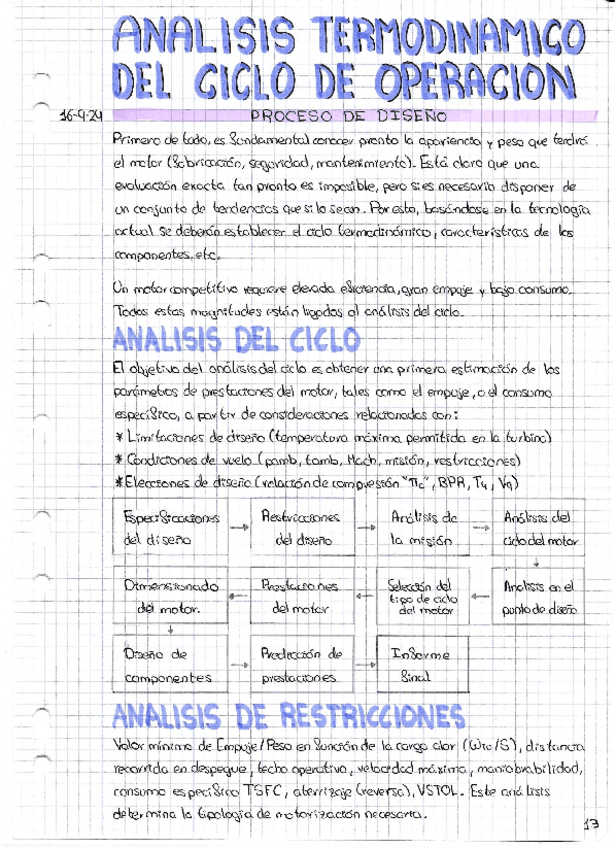 ANALISIS TERMODINAMICO
DEL CICLO DE OPERACION
16-9-24
PROCESO DE DISEÑO
Primero de todo, es fundamental conocer pronto la apariencia y peso que tendrá
el motor (fabricación, seguridad, mantenimiento). Está claro que una
evaluación exacta tan pronto es imposible, pero si es necesario disponer de
un conjunto de tendencias que si lo sean. Por esto, basándose en la tecnología
actual se deberán establecer el ciclo termodinámico, características de los
componentes, etc.
Un motor competitivo requiere elevada eficiencia, gran empuje y bajo consumo.
Todas estas magnitudes están ligadas al análisis del ciclo.
ANALISIS DEL CICLO
El objetivo del análisis del ciclo es obtener una primera estimación de los
parámetros de prestaciones del motor, tales como el empuje, o el consumo
específico, a partir de consideraciones relacionadas con:
* Limitaciones de diseño (temperatura máxima permitida en la turbina)
* Condiciones de vuelo (pamb, tamb, Mach, misión, restricciones)
* Elecciones de diseño (relación de compresión "πc", BPR, T4, V9)
Especificaciones
del diseño
Restricciones
del diseño
Análisis de
la misión
Análisis del
ciclo del motor
Dimensionado
del motor.
Prestaciones
del motor
Selección del
tipo de ciclo
del motor
Análisis en el
punto de diseño
Diseño de
componentes
Predicción de
prestaciones
Informe
final
ANALISIS DE RESTRICCIONES
Valor mínimo de Empuje/Peso en función de la carga alar (WTO/S), distancia
recorrida en despegue, techo operativo, velocidad máxima, maniobrabilidad,
consumo específico TSFC, aterrizaje (reversa), VSTOL. Este análisis
determina la tipología de motorización necesaria.
13